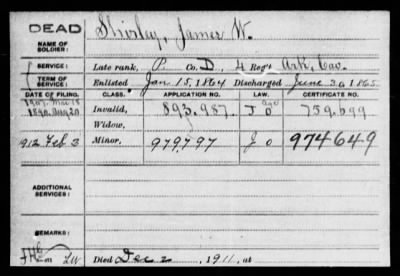 DEAD
NAME OF SOLDIER: Shirley, James W.
SERVICE: Late rank, P. Co. D., 4 Reg't Ark. Cav.
TERM OF SERVICE: Enlisted Jan 15, 1864 Discharged June 30, 1865.
DATE OF FILING. CLASS. APPLICATION NO. LAW. CERTIFICATE NO.
1890. Aug 20 Invalid, 893,987. 759,699
Widow,
1912 Feb 3 Minor, 979797 974649
ADDITIONAL SERVICES:
REMARKS:
Died Dec 2, 1911, at